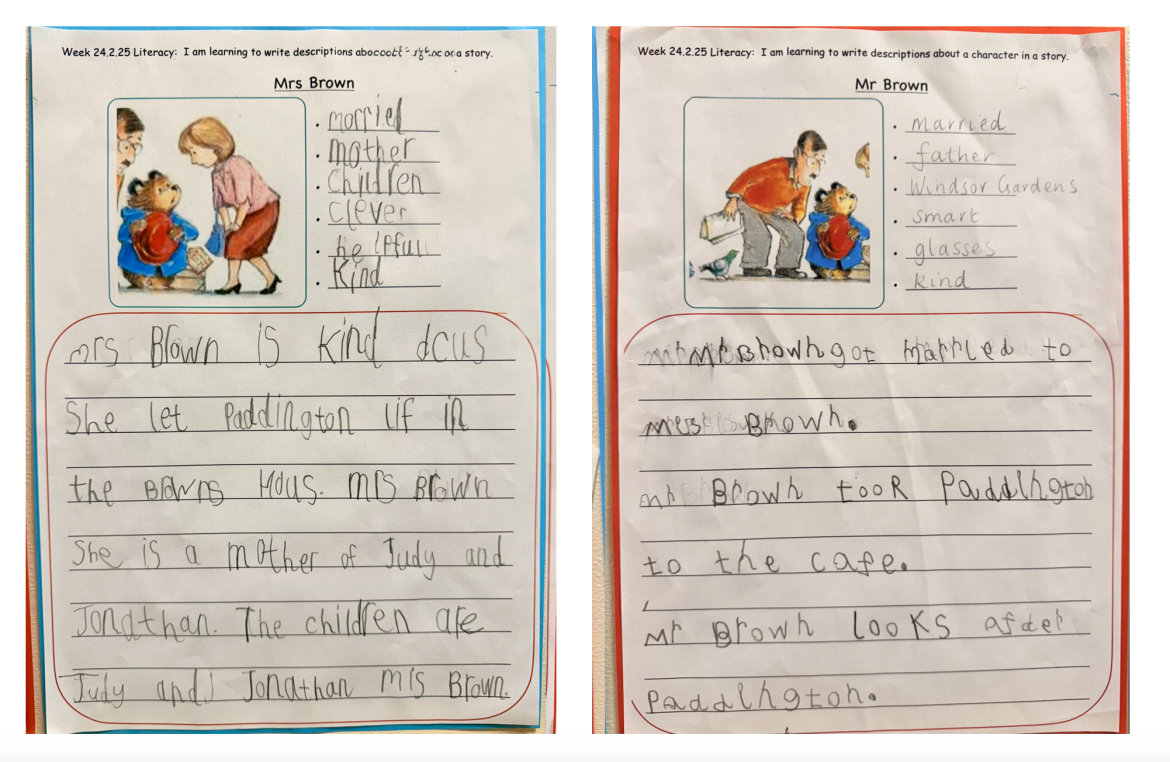 Week 24.2.25 Literacy: I am learning to write descriptions or a story.
Mrs Brown
married
mother
children
clever
helpfull
Kind
mrs Brown is kind dcus
She let Paddington lif in
the Browns Hous. mrs Brown
She is a mother of Judy and
Jonathan. The children are
Judy and Jonathan mrs Brown.
Week 24.2.25 Literacy: I am learning to write descriptions about a character in a story.
Mr Brown
married
father
Windsor Gardens
smart
glasses
kind
Mr Brown got married to
mrs Brown.
mr Brown took Paddington
to the cafe.
Mr Brown looks afder
Paddington.